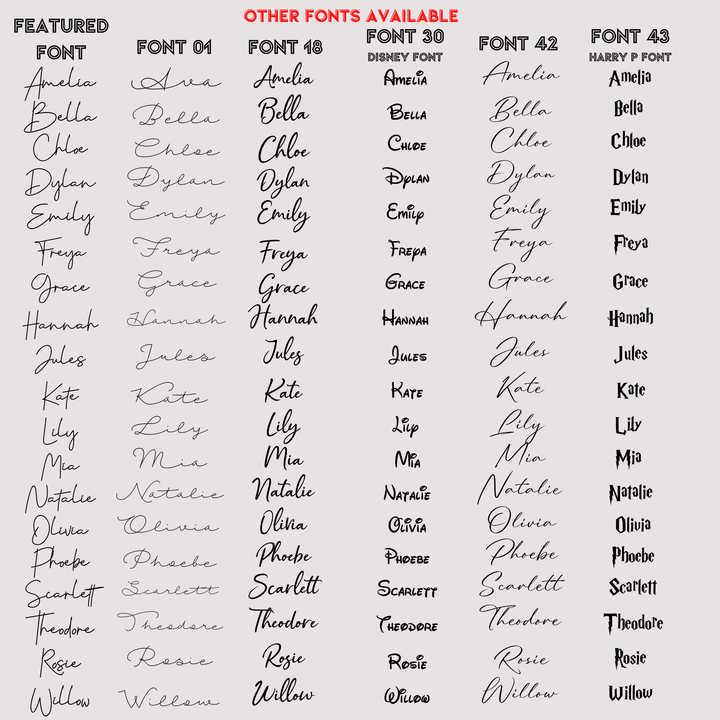 OTHER FONTS AVAILABLE
FEATURED FONT FONT 01 FONT 18 FONT 30 DISNEY FONT FONT 42 FONT 43 HARRY P FONT
Amelia Ava Amelia Amelia Amelia Amelia
Bella Bella Bella Bella Bella Bella
Chloe Chloe Chloe Chloe Chloe Chloe
Dylan Dylan Dylan Dylan Dylan Dylan
Emily Emily Emily Emily Emily Emily
Freya Freya Freya Freya Freya Freya
Grace Grace Grace Grace Grace Grace
Hannah Hannah Hannah Hannah Hannah Hannah
Jules Jules Jules Jules Jules Jules
Kate Kate Kate Kate Kate Kate
Lily Lily Lily Lily Lily Lily
Mia Mia Mia Mia Mia Mia
Natalie Natalie Natalie Natalie Natalie Natalie
Olivia Olivia Olivia Olivia Olivia Olivia
Phoebe Phoebe Phoebe Phoebe Phoebe Phoebe
Scarlett Scarlett Scarlett Scarlett Scarlett Scarlett
Theodore Theodore Theodore Theodore Theodore Theodore
Rosie Rosie Rosie Rosie Rosie Rosie
Willow Willow Willow Willow Willow Willow